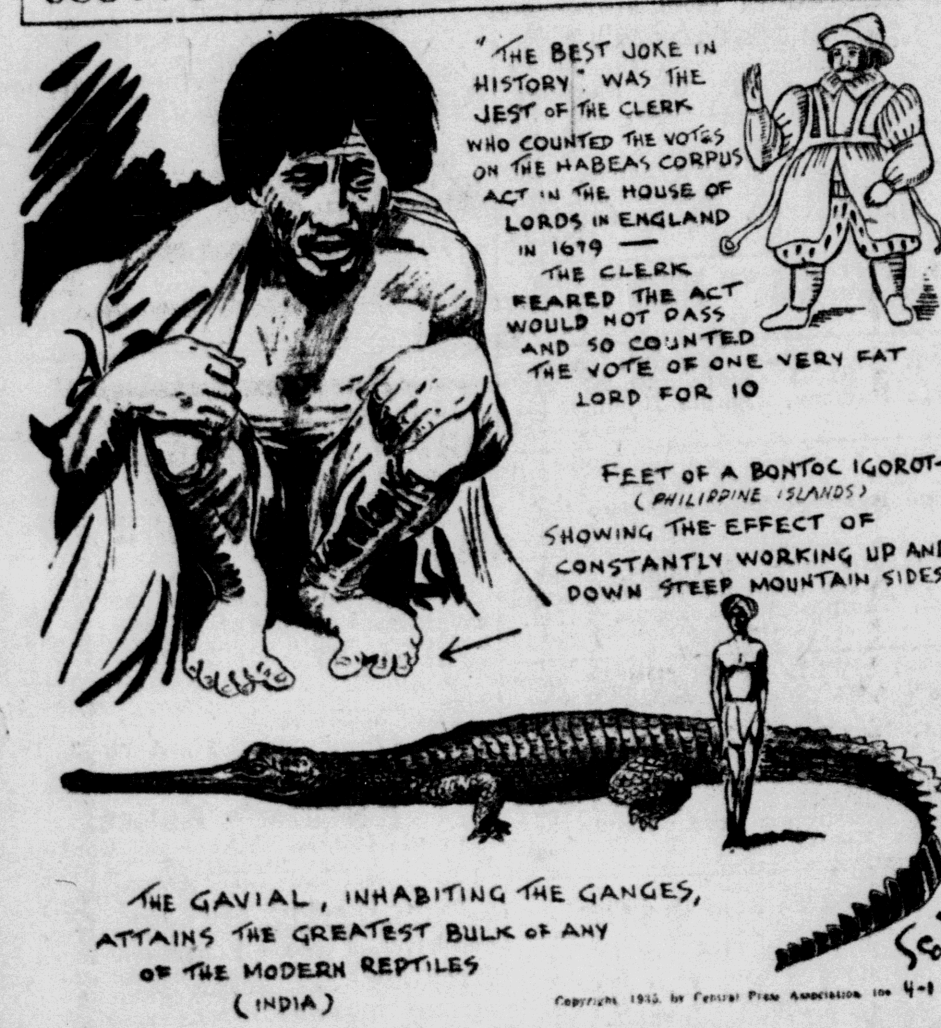 "THE BEST JOKE IN
HISTORY" WAS THE
JEST OF THE CLERK
WHO COUNTED THE VOTES
ON THE HABEAS CORPUS
ACT IN THE HOUSE OF
LORDS IN ENGLAND
IN 1679 —
THE CLERK
FEARED THE ACT
WOULD NOT PASS
AND SO COUNTED
THE VOTE OF ONE VERY FAT
LORD FOR 10
FEET OF A BONTOC IGOROT-
(PHILIPPINE ISLANDS)
SHOWING THE EFFECT OF
CONSTANTLY WORKING UP AND
DOWN STEEP MOUNTAIN SIDES
THE GAVIAL, INHABITING THE GANGES,
ATTAINS THE GREATEST BULK OF ANY
OF THE MODERN REPTILES
(INDIA)
Copyright, 1935, by Central Press Association, Inc. 4-1